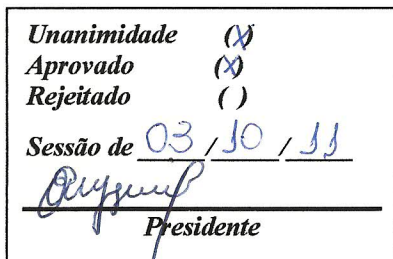 Unanimidade (X)
Aprovado (X)
Rejeitado ( )
Sessão de 03/10/11
Presidente